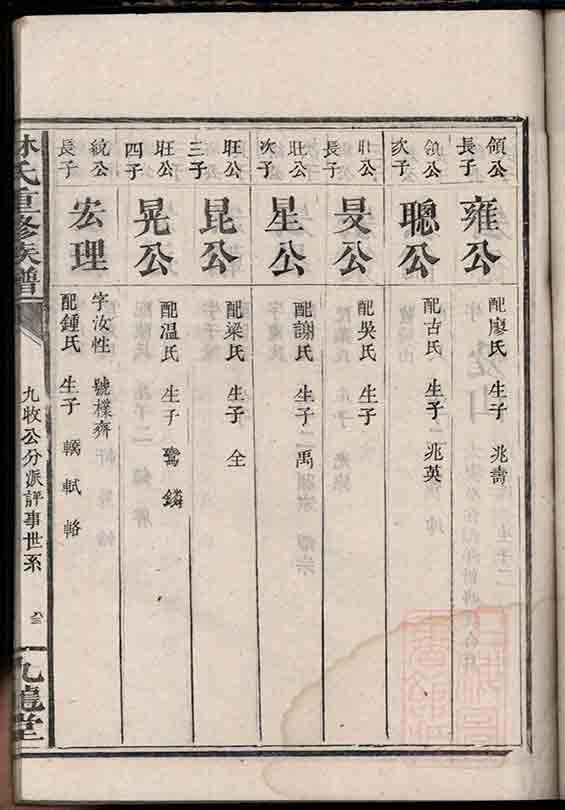 領公
長子
雍公
配廖氏 生子 兆壽
領公
次子
聰公
配古氏 生子 兆英
旺公
長子
旻公
配吳氏 生子
旺公
次子
星公
配謝氏 生子 禹
旺公
三子
昆公
配梁氏 生子 全
旺公
四子
晃公
配温氏 生子 鸞 鏻
統公
長子
宏理
字汝性 號樸齊
配鍾氏 生子 輞 軾 輅
林氏重修族譜
九牧公分派評事世系
九龍堂